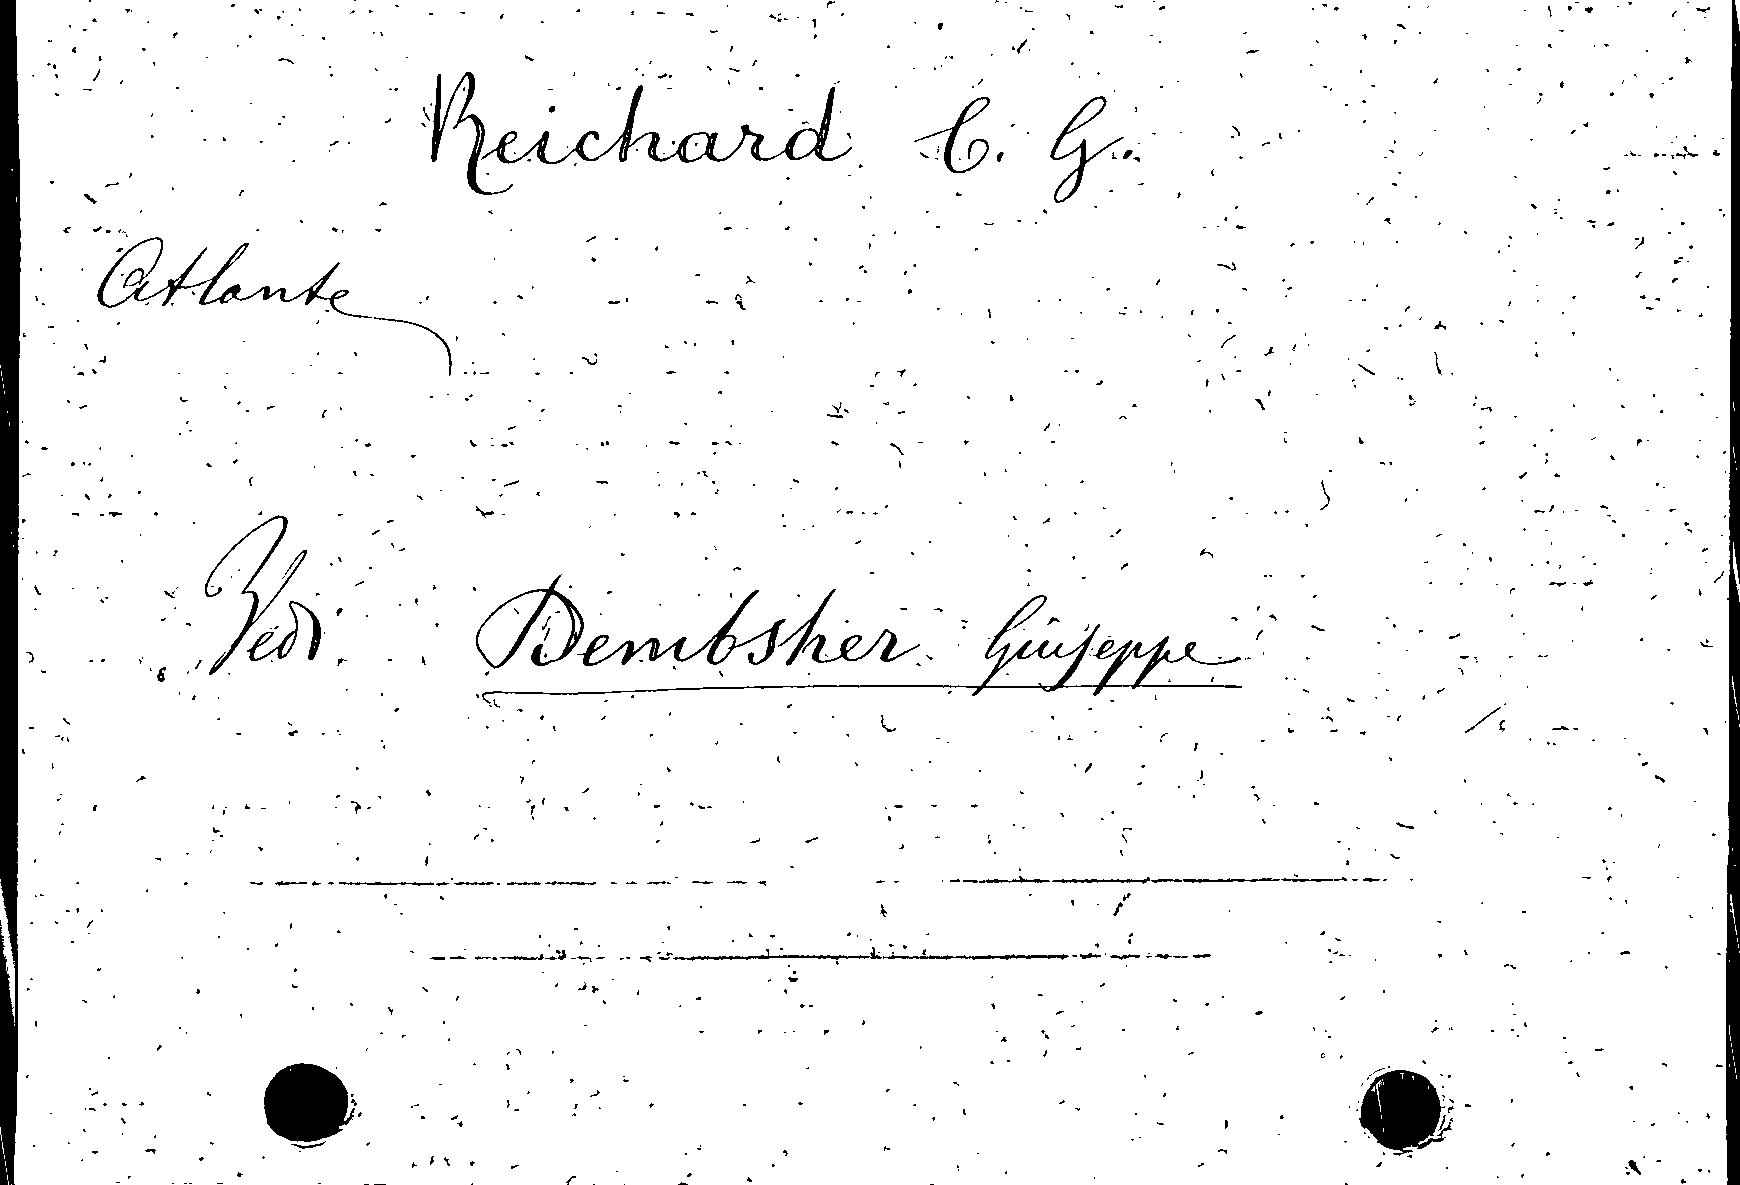 Reichard C. G.
Atlante
Vedi Dembsher Giuseppe